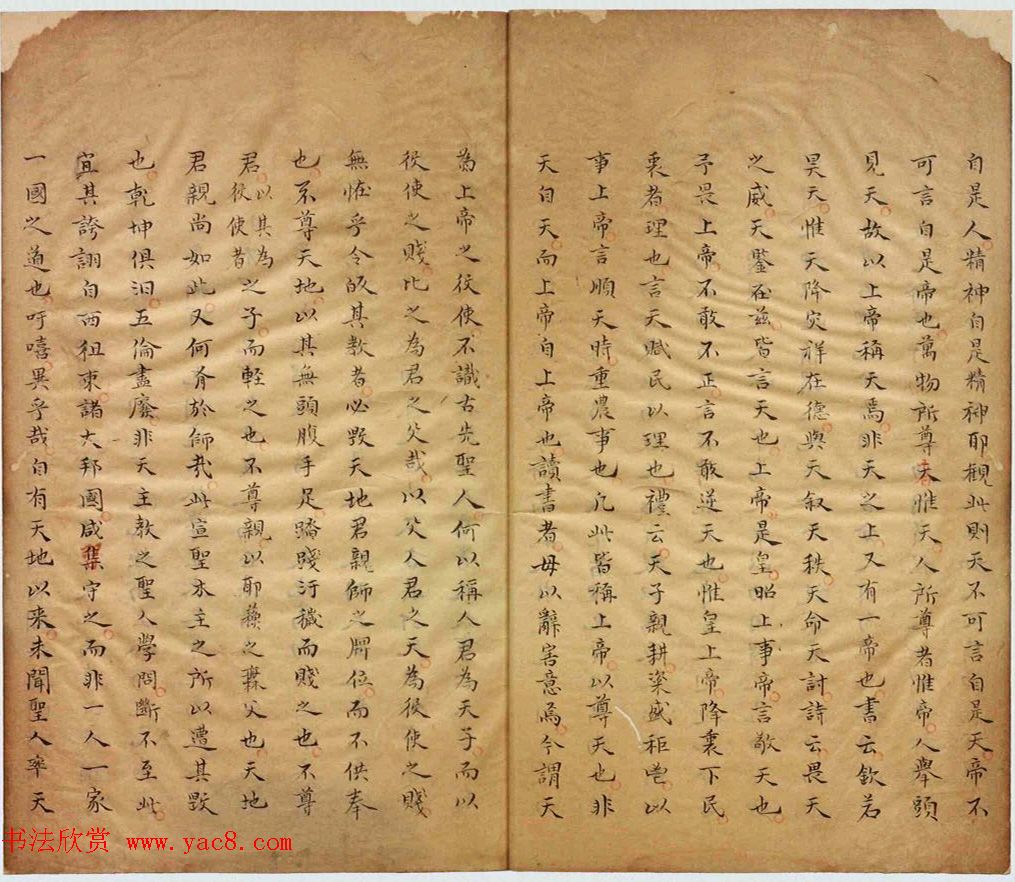 自是人精神自是精神耶觀此則天不可言自是天帝不
可言自是帝也萬物所尊者惟天人所尊者惟帝人舉頭
見天故以上帝稱天焉非天之上又有一帝也書云欽若
昊天惟天降灾祥在德與天叙天秩天命天討詩云畏天
之威天鑒在兹皆言天也上帝是皇昭上事帝言敬天也
予畏上帝不敢不正言不敢逆天也惟皇上帝降衷下民
衷者理也言天賦民以理也禮云天子親耕粢盛秬鬯以
事上帝言順天時重農事也凡此皆稱上帝以尊天也非
天自天而上帝自上帝也讀書者毋以辭害意焉今謂天
為上帝之役使不識古先聖人何以稱人君為天子而以
役使之賤比之為君之父哉以父人君之天為役使之賤
無怪乎令皈其教者必毀天地君親師之牌位而不供奉
也不尊天地以其無頭腹手足踏踐汙穢而賤之也不尊
君以其為役使者之子而輕之也不尊親以耶蘇之無父也天地
君親尚如此又何有於師哉此宣聖木主之所以遭其毀
也乾坤俱汨五倫盡廢非天主教之聖人學問斷不至此
宜其誇詡自西徂東諸大邦國咸集守之而非一人一家
一國之道也吁嘻異乎哉自有天地以来未聞聖人率天
书法欣赏 www.yac8.com